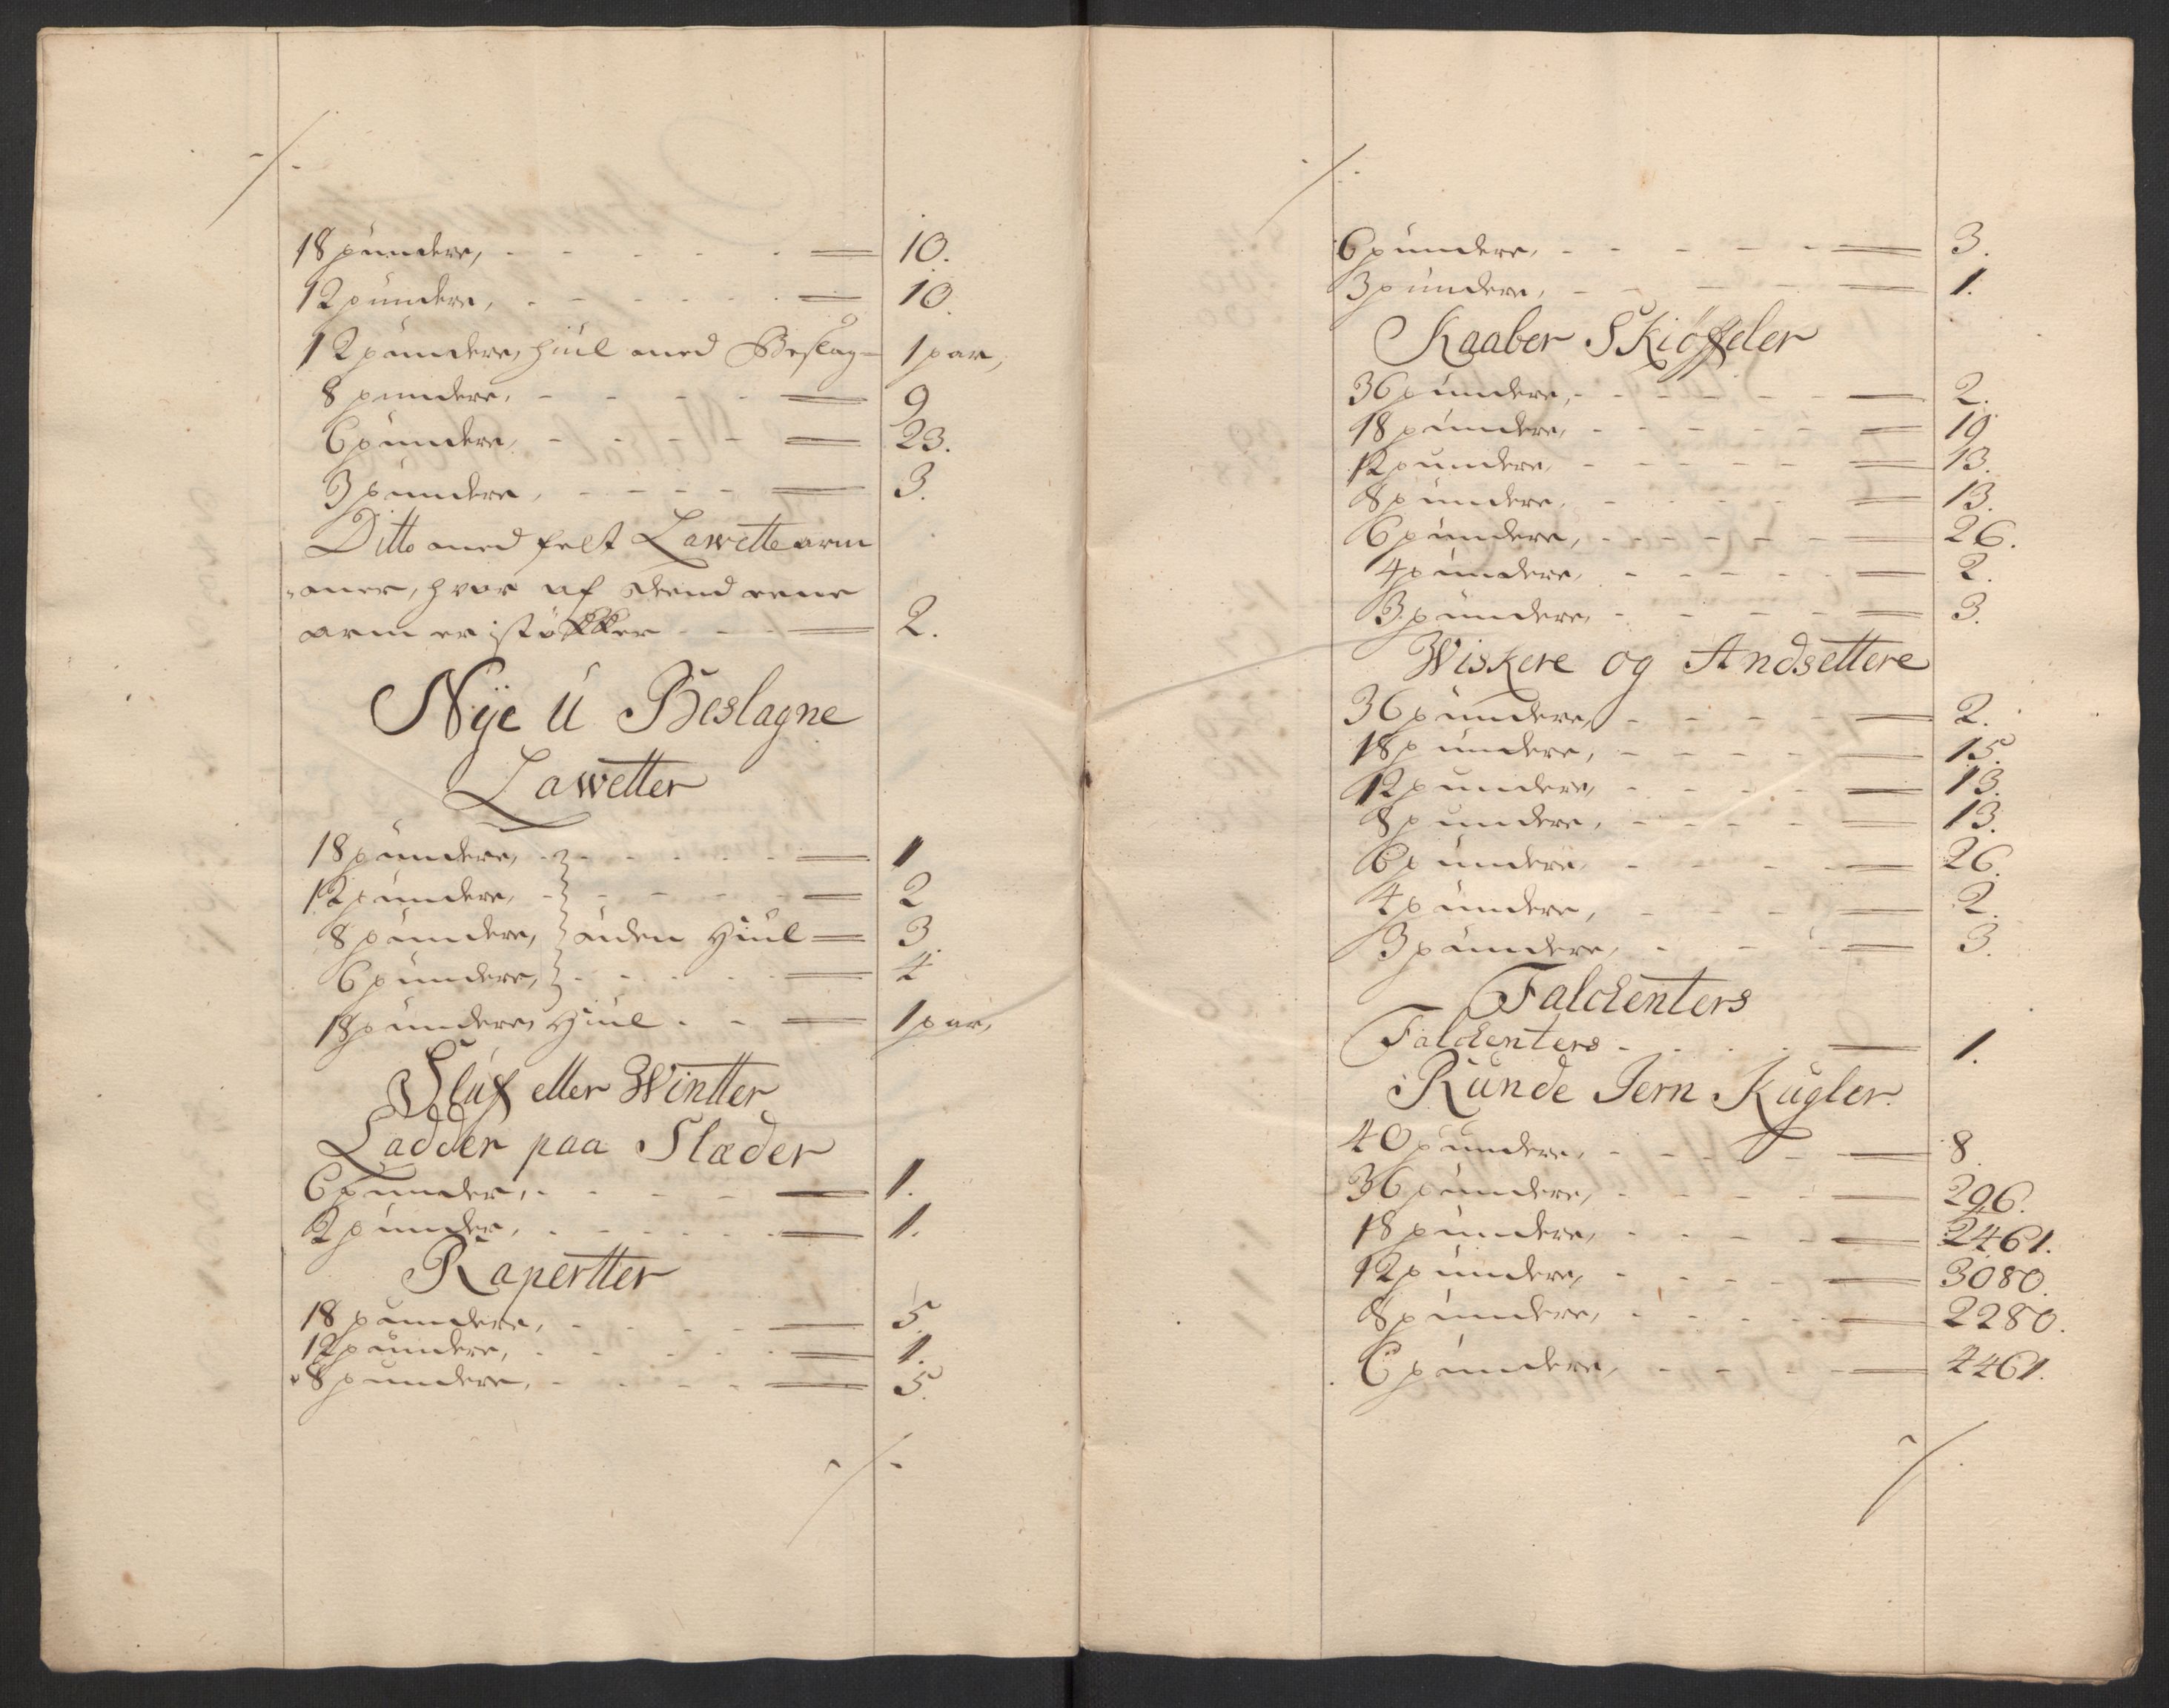 18 pundere, - - - - - = 10.
12 pundere, - - - - - = 10.
12 pundere, Hiul med Beslag = 1 par,
8 pundere, - - - - = 9
6 pundere, - - - - = 23.
3 pundere, - - - - = 3.
Ditto med felt Lawette arm
aner, hvor af deend eene
arm er i støkker - - - = 2.
Nÿe U Beslagne
Lawetter
18 pundere, - - - - = 1
12 pundere, - - - - = 2
8 pundere, uden Hiul = 3.
6 pundere, - - - - = 4
18 pundere Hiul - - = 1 par,
Sluf eller Wintter
Ladder paa Slæder
6 punder, - - - - = 1.
2 punder, - - - - = 1.
Rapertter
18 pundere, - - - - = 5.
12 pundere, - - - - = 1.
8 pundere, - - - - = 5.
6 pundere, - - - - - = 3.
3 pundere, - - - - = 1.
Kaaber Skiøffeler
36 pundere, - - - - - = 2.
18 pundere, - - - - - = 19
12 pundere, - - - - - = 13.
8 pundere, - - - - = 13.
6 pundere, - - - - - = 26.
4 pundere, - - - - = 2.
3 pundere, - - - - = 3.
Wiskere og Andsettere
36 pundere, - - - - = 2.
18 pundere, - - - - = 15.
12 pundere, - - - - = 13.
8 pundere, - - - - = 13.
6 pundere, - - - - = 26.
4 pundere, - - - - = 2.
3 pundere, - - - = 3.
Falckenters
Falckenters - - - - = 1.
Runde Jern Kugler
40 pundere, - - - - = 8.
36 pundere, - - - - = 296.
18 pundere, - - - - = 2461.
12 pundere, - - - - = 3080.
8 pundere, - - - - = 2280.
6 pundere, - - - - = 4461.